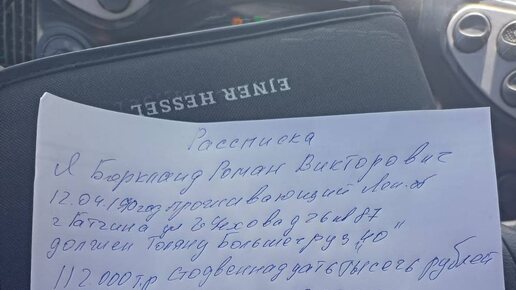 EJNER HESSEL
Рассписка
Я Боркланд Роман Викторович
12.04.1990год проживающий Лен.об
г Гатчина ул Чехова д 26 кв 87
должен Толяну Большегруз "40"
112.000 т.р стодвеннадцать тысечь рублей